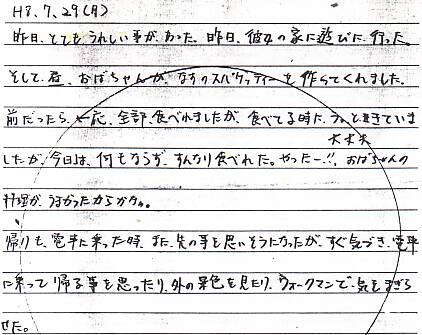 H8.7.29(月)
昨日、とてもうれしい事があった。昨日、彼女の家に遊びに行った。
そして昼、おばちゃんが、なすのスパゲッティーを作ってくれました。
前だったら、一応、全部、食べれましたが、食べてる時に、うっときていま
したが、今日は、何もならず、すんなり食べれた。やったー!!、おばちゃんの
大丈夫
料理が、うまかったからかなぁ。
帰りも、電車に乗った時、また、先の事を思いそうになったが、すぐ気づき、電車
に乗って帰る事を思ったり、外の景色を見たり、ウォークマンで、気をまぎら
せた。